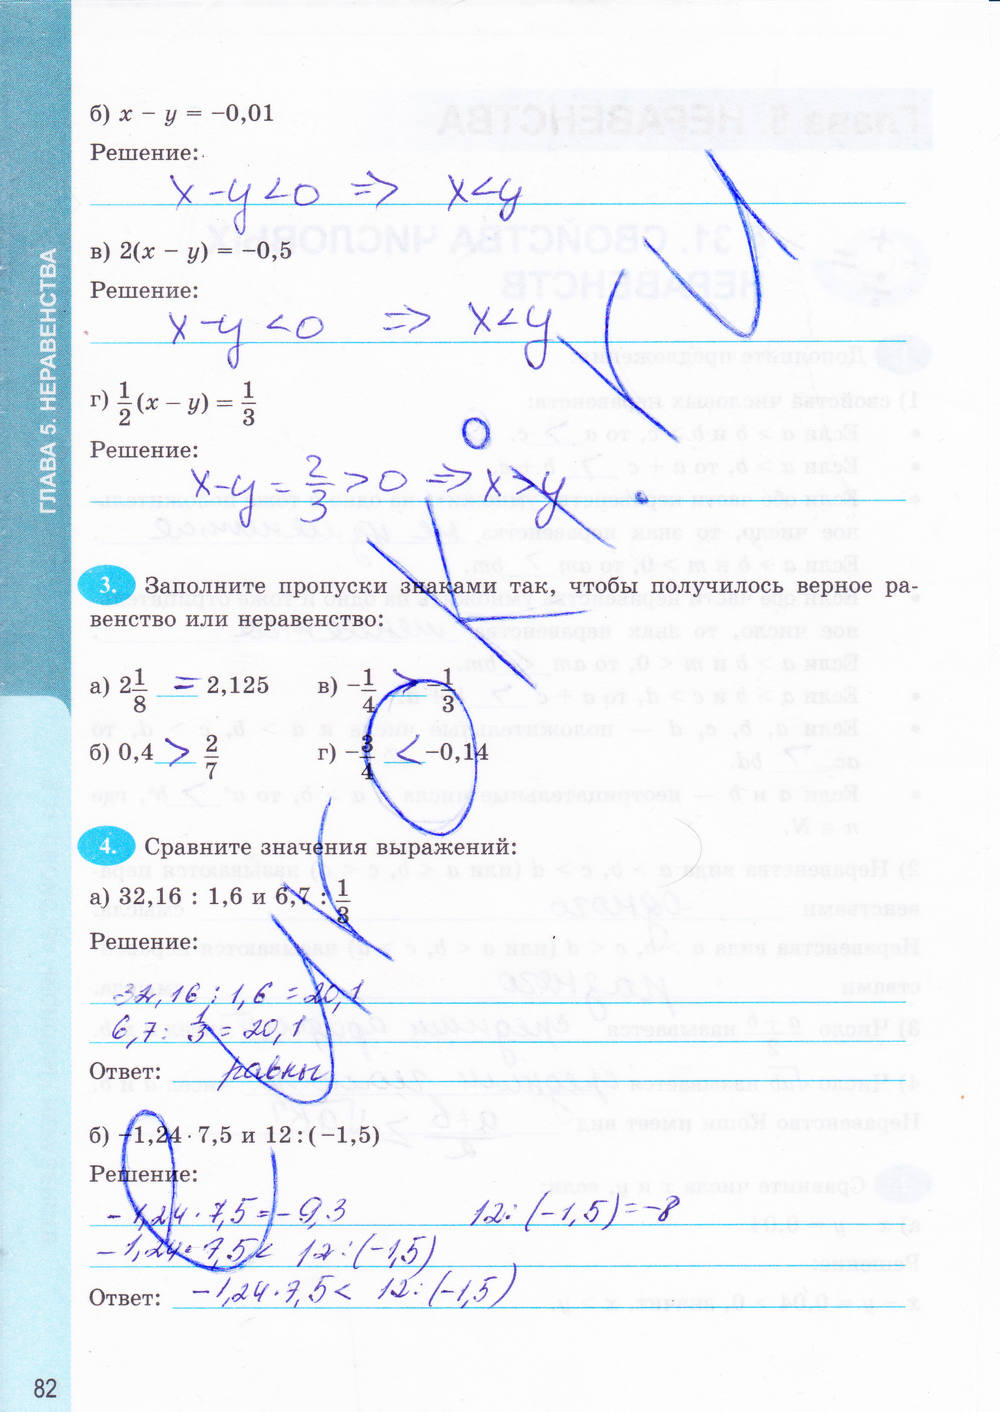 б) x − y = −0,01
Решение:
x − y < 0 ⇒ x < y
в) 2(x − y) = −0,5
Решение:
x − y < 0 ⇒ x < y
г) 1/2 (x − y) = 1/3
Решение:
x − y = 2/3 > 0 ⇒ x > y
3. Заполните пропуски знаками так, чтобы получилось верное ра-
венство или неравенство:
а) 2 1/8 = 2,125 в) −1/4 > −1/3
б) 0,4 > 2/7 г) −3/4 < −0,14
4. Сравните значения выражений:
а) 32,16 : 1,6 и 6,7 : 1/3
Решение:
32,16 : 1,6 = 20,1
6,7 : 1/3 = 20,1
Ответ: равны
б) −1,24 · 7,5 и 12 : (−1,5)
Решение:
−1,24 · 7,5 = −9,3 12 : (−1,5) = −8
−1,24 · 7,5 < 12 : (−1,5)
Ответ: −1,24 · 7,5 < 12 : (−1,5)
ГЛАВА 5. НЕРАВЕНСТВА
82